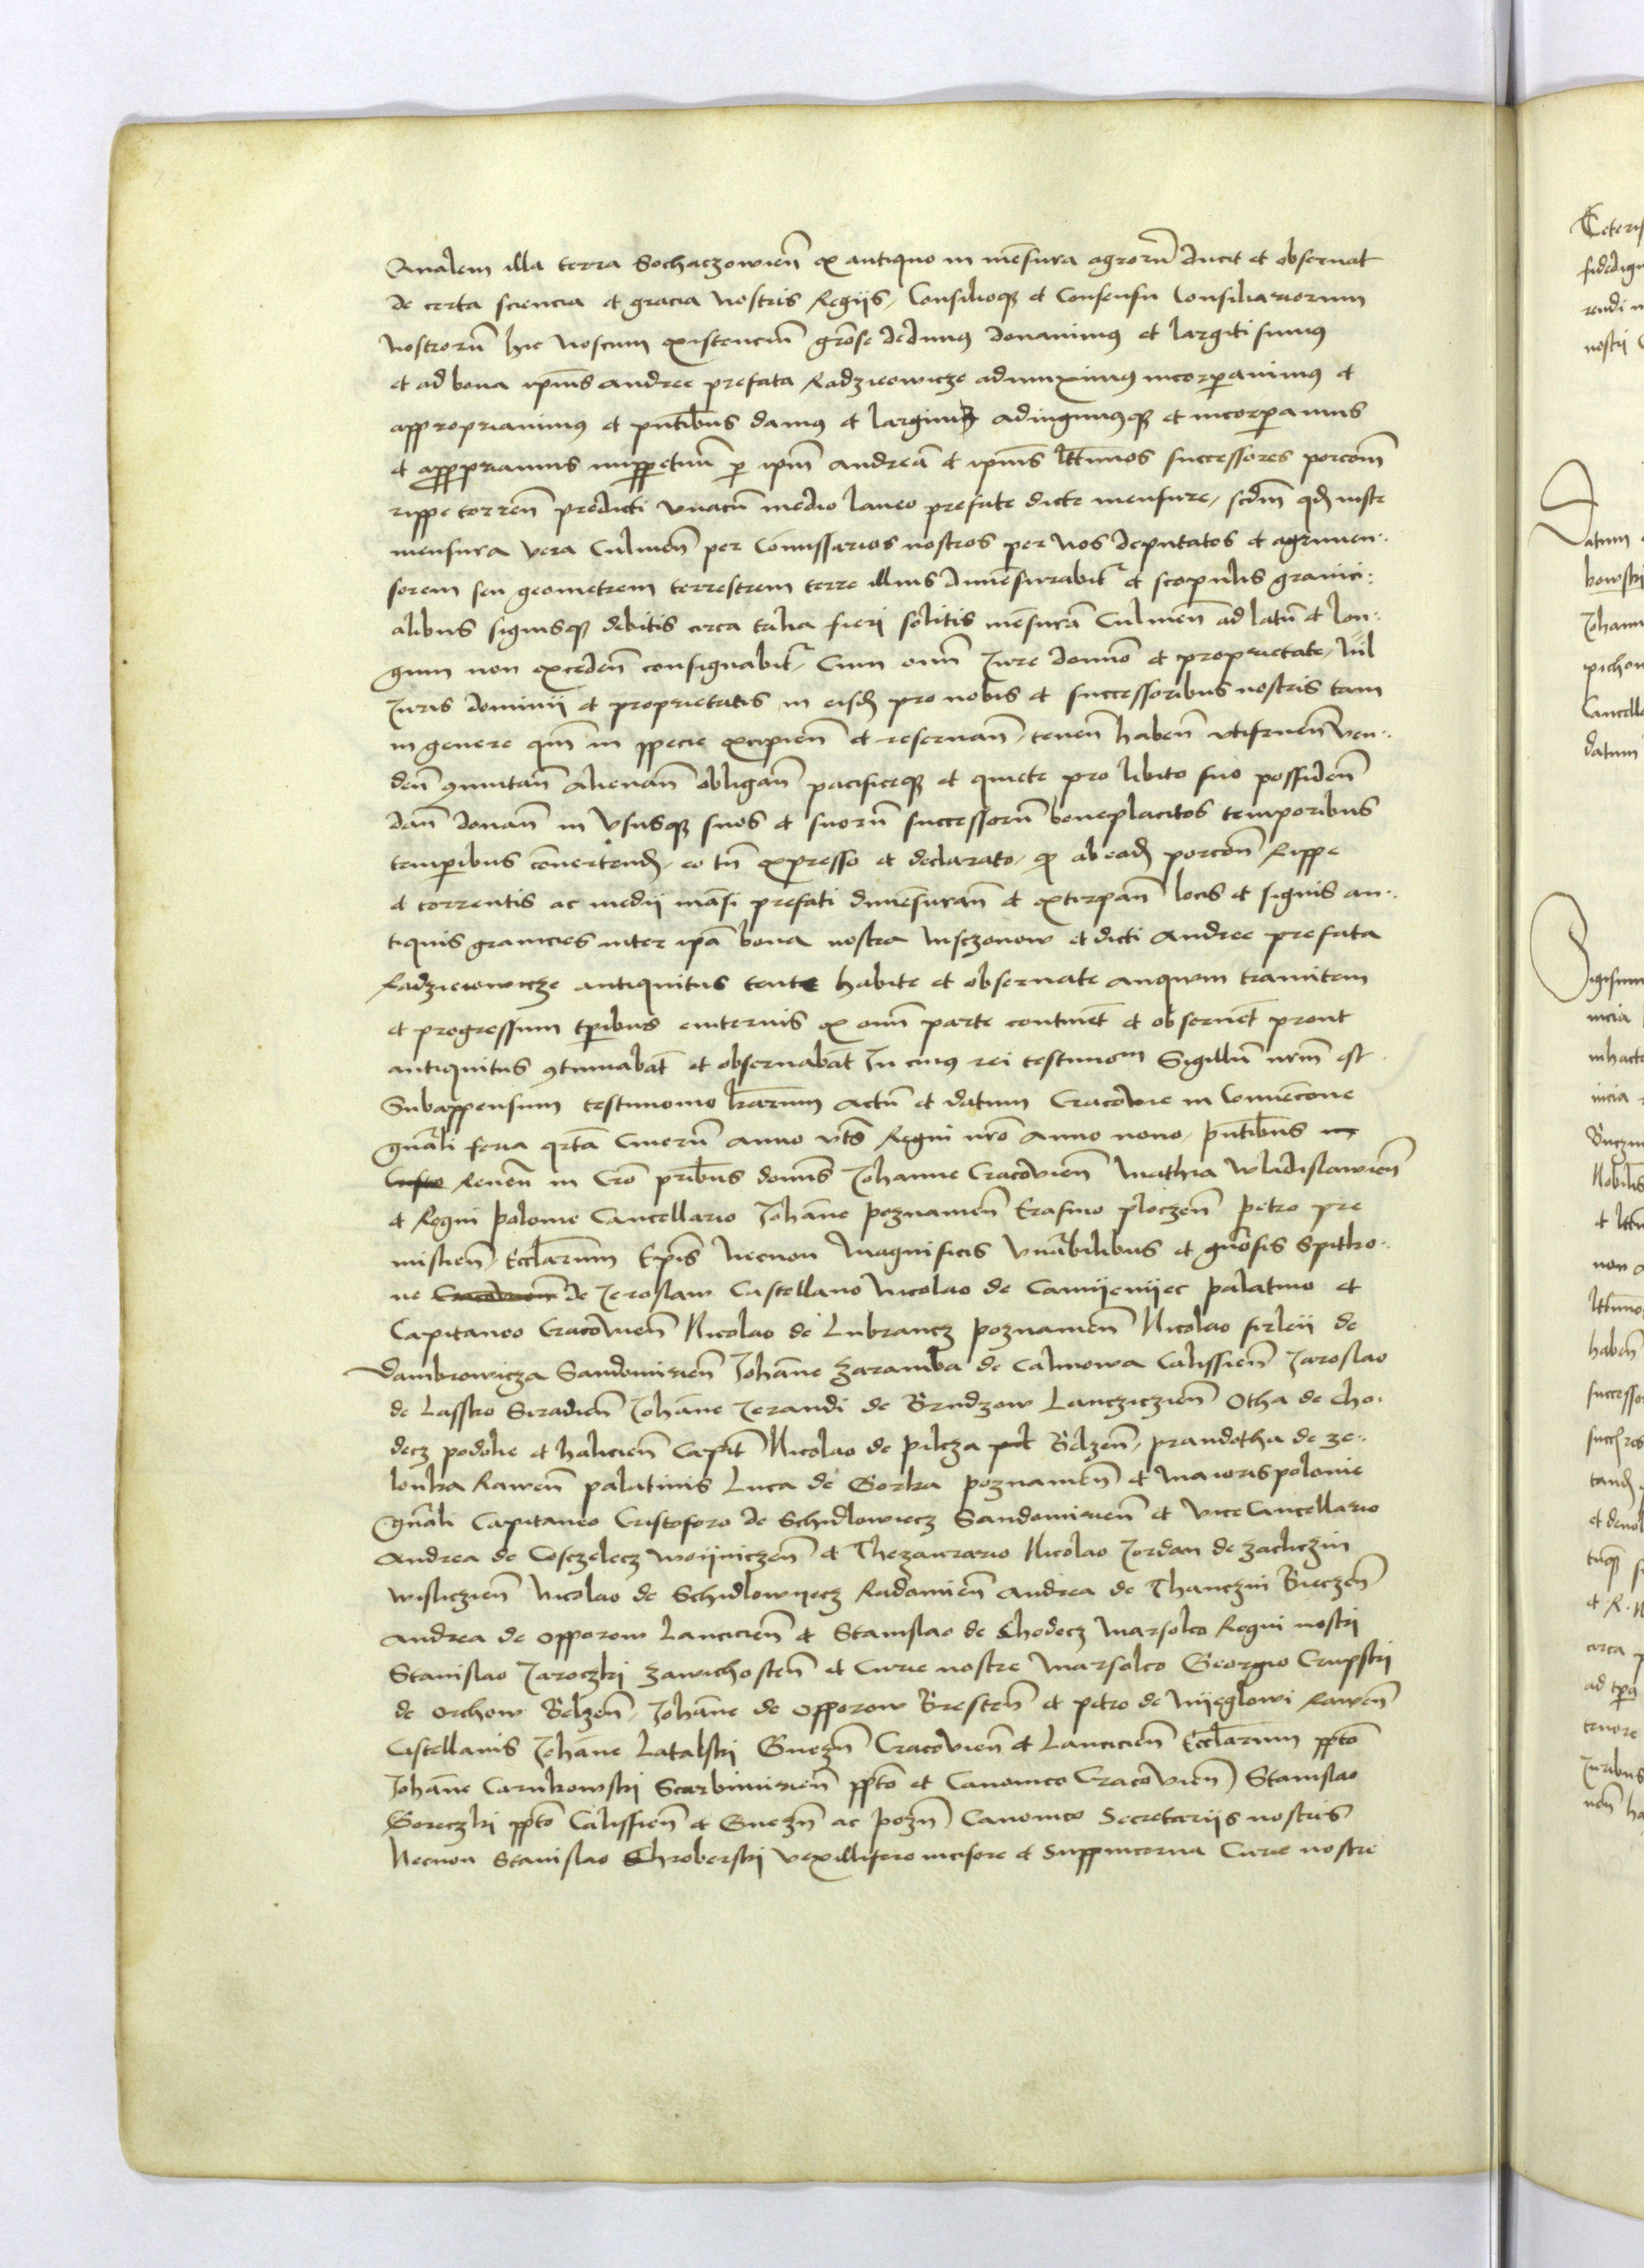 Qualem illa terra Sochaczowień ex antiquo in mēsura agrorū ducit et obseruat
de certa sciencia et gracia nostris Regijs, Consilioqȝ et Consensu Consiliariorum
nostrorū hic noscum existenciū grōse dedimus donauimus et largiti sumus
et ad bona ipīus andree prefata Radzieiowicze adiunximus incorporauimus et
appropriauimus et pñtibus damus et largimur adiungimusqȝ et incorporamus
et appropriamus imperpetuū per ipm̄ andreā et ipīus lttīmos successores porcōm
rippe torreñ predicti vnacū medio laneo prefate dicte mensure, scdm̄ qd iuste
mensura vera Culmeñ per Comissarios nostros per nos deputatos et agrimen-
sorem seu geometrem terrestrem terre illius dimēsurabitr et scopulis granici-
alibus signisqȝ debitis circa talia fieri solitis mēsurā Culmeñ ad latū et lon-
gum non excedeñ consignabitr Cum omī Iure domīo et proprietate, Nil
Iuris dominij et proprietatis in eisd pro nobis et successoribus nostris tam
in genere qm̄ in specie excipieñ et reseruañ, teneñ habeñ vtifrueñ ven-
deñ ꝯmutañ alienañ obligañ pacificeqȝ et quiete pro libito suo possideñ
dañ donañ in vsusqȝ suos et suorū successorū beneplacitos temporibus
temporibus cōuertend, eo tñ expresso et declarato, qȝ ab eadē porcōn Rippe
et torrentis ac medij māsi prefati dimēsurañ et extirpañ locis et signis an-
tiquis granicies inter ipā bona nostra Msczonow et dicti andree prefata
Radzieiowicze antiquitus tente habite et obseruate anquum tramitem
et progressum tpribus euiternis ex omī parte contineñt et obserueñt prout
antiquitus ꝯtinuabāt et obseruabāt In cuius rei testimom Sigillū nrm̄ est
Subappensum testimonio lrārum actū et datum Cracovie in Conuēcione
gñali feria qrtā Cinerū anno vts Regni nrō anno nono, pñtibus
Reueñ in Cro pribus domīs Iohanne Cracovień Mathia Wladislawień
et Regni polonie Cancellario Johāne poznanień Erasmo ploczeñ petro pre
mislieñ, Eccl̄arum Epīs necnon Magnificis Vnābilibus et gñosis Spitko-
ne de Jeroslaw Castellano Nicolao de Camijenijec palatino et
Capitaneo Cracovień Nicolao de Lubrancz poznanień Nicolao firleij de
dambrowicza Sandomirień Johāne Zaramba de Calinowa Calissień Jaroslao
de Lassko Siradień Johāne Jerandi de Brudzow Lancziczień Otha de Cho-
decz podolie et halicień Capit Nicolao de pilcza Belzeñ, prandotha de ze-
lonka Raweñ palatinis Luca de Gorka poznanień et Maioris polonie
gñali Capitaneo Cristoforo de Schidlowiecz Sandomirień et Vice Cancellario
andrea de Cosczelecz woijniczeñ et Thezaurario Nicolao Jordan de zacliczin
wisliczień Nicolao de Schidlowijecz Radomień andrea de Thanczin Bieczeñ
andrea de Opporow Lancicień et Stanislao de Chodecz Marsalco Regni nostri
Stanislao Jaroczki zawichosteñ et Curie nostre Marsalco Georgio Crupski
de orchow Belzeñ, Johāne de Opporow Bresteñ et petro de Mijeglowi Raweñ
Castellanis Johāne Latalski Gnezñ Cracovień et Lancicień Eccl̄arum ppto
Johāne Carnkowski Scarbimirień ppto et Canonico Cracovień, Stanislao
Goreczki ppto Calissień et Gnezñ ac pozñ Canonico Secretarijs nostris
Necnon Stanislao Chroberski vexillifero incisore et Suppincerna Curie nostre